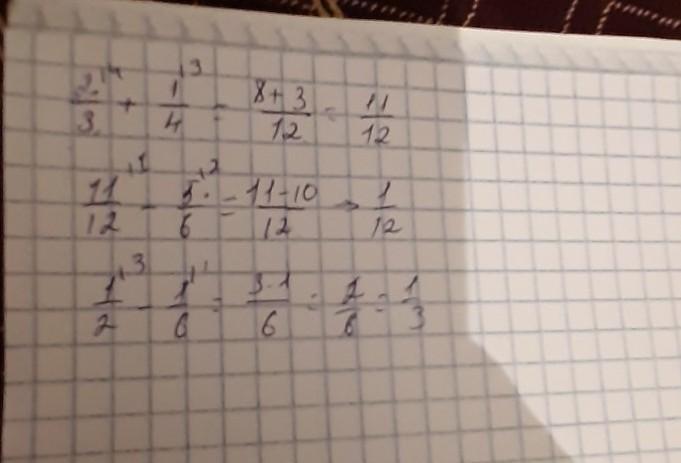 2/3 ⁽⁴ + 1/4 ⁽³ = 8+3/12 = 11/12
11/12 ⁽¹ - 5/6 ⁽² = 11-10/12 = 1/12
1/2 ⁽³ - 1/6 ⁽¹ = 3-1/6 = 2/6 = 1/3